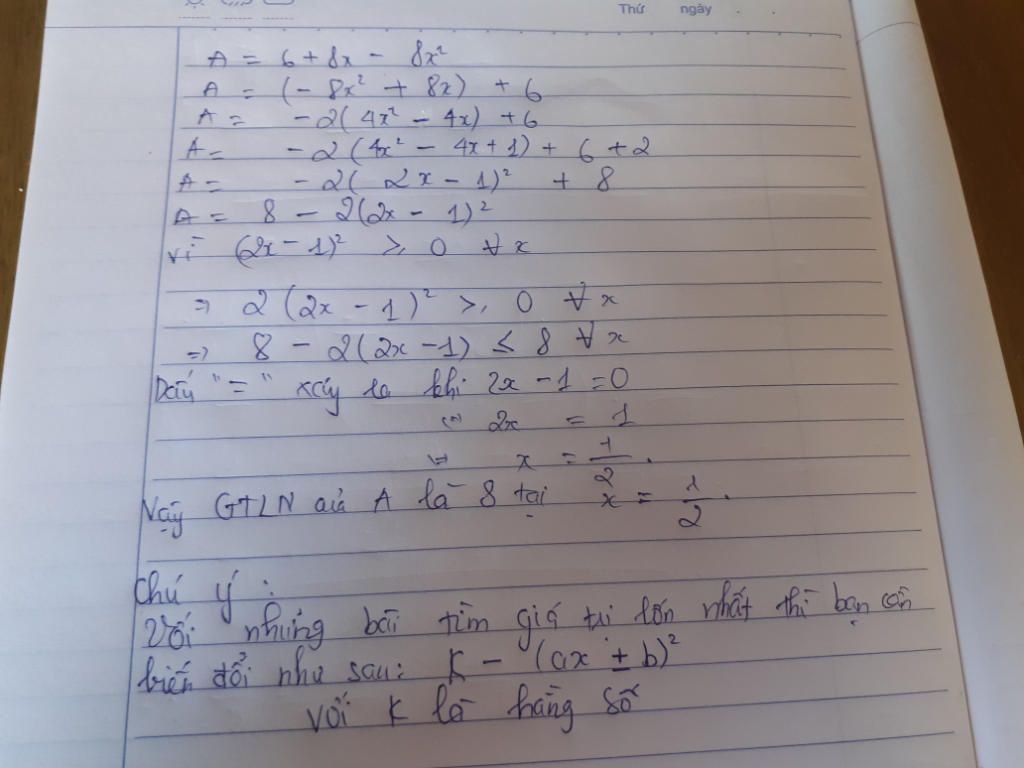 Thứ ngày
A = 6 + 8x - 8x²
A = (- 8x² + 8x) + 6
A = - 2( 4x² - 4x) + 6
A = - 2 ( 4x² - 4x + 1) + 6 + 2
A = - 2( 2x - 1)² + 8
A = 8 - 2(2x - 1)²
vì (2x - 1)² ≥ 0 ∀ x
⇒ 2 (2x - 1)² ≥ 0 ∀ x
⇒ 8 - 2(2x - 1) ≤ 8 ∀ x
Dấu "=" xảy ra khi 2x - 1 = 0
⇔ 2x = 1
⇔ x = 1/2.
Vậy GTLN của A là 8 tại x = 1/2.
Chú ý :
Với những bài tìm giá trị lớn nhất thì bạn cần
biến đổi như sau: K - (ax ± b)²
với K là hằng số